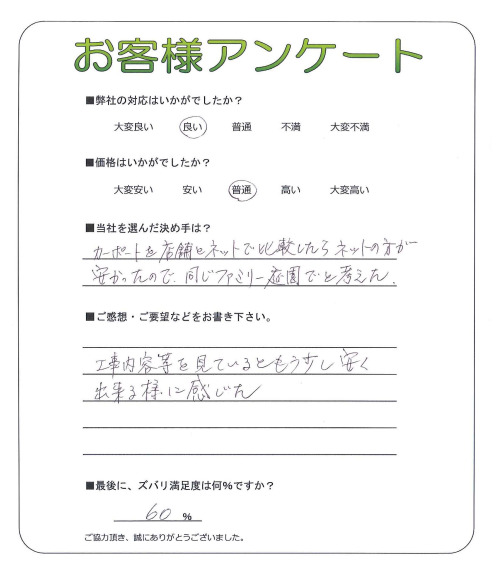 お客様アンケート
■弊社の対応はいかがでしたか？
大変良い 良い 普通 不満 大変不満
■価格はいかがでしたか？
大変安い 安い 普通 高い 大変高い
■当社を選んだ決め手は？
カーポートを店舗とネットで比較したらネットの方が
安かったので、同じファミリー庭園でと考えた。
■ご感想・ご要望などをお書き下さい。
工事内容等を見ているともう少し安く
出来る様に感じた
■最後に、ズバリ満足度は何％ですか？
60 ％
ご協力頂き、誠にありがとうございました。